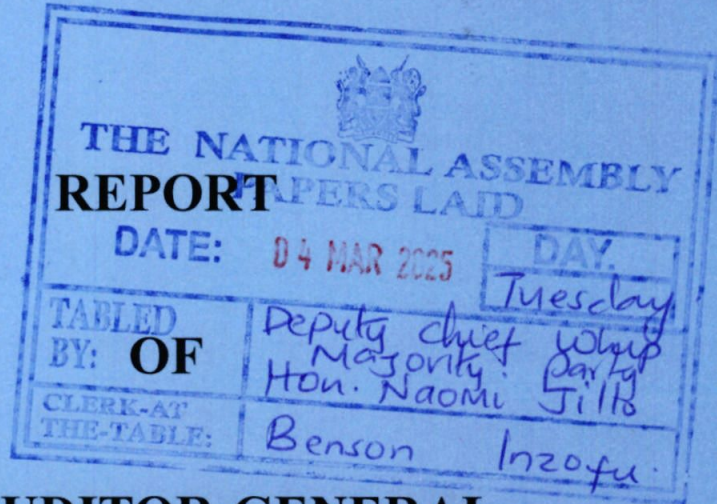 THE NATIONAL ASSEMBLY
PAPERS LAID
REPORT
DATE: 04 MAR 2025
DAY.
Tuesday
TABLED BY:
OF
Deputy chief whip
Majority party
Hon. Naomi Jillo
CLERK-AT THE-TABLE:
Benson Inzofu.
AUDITOR-GENERAL